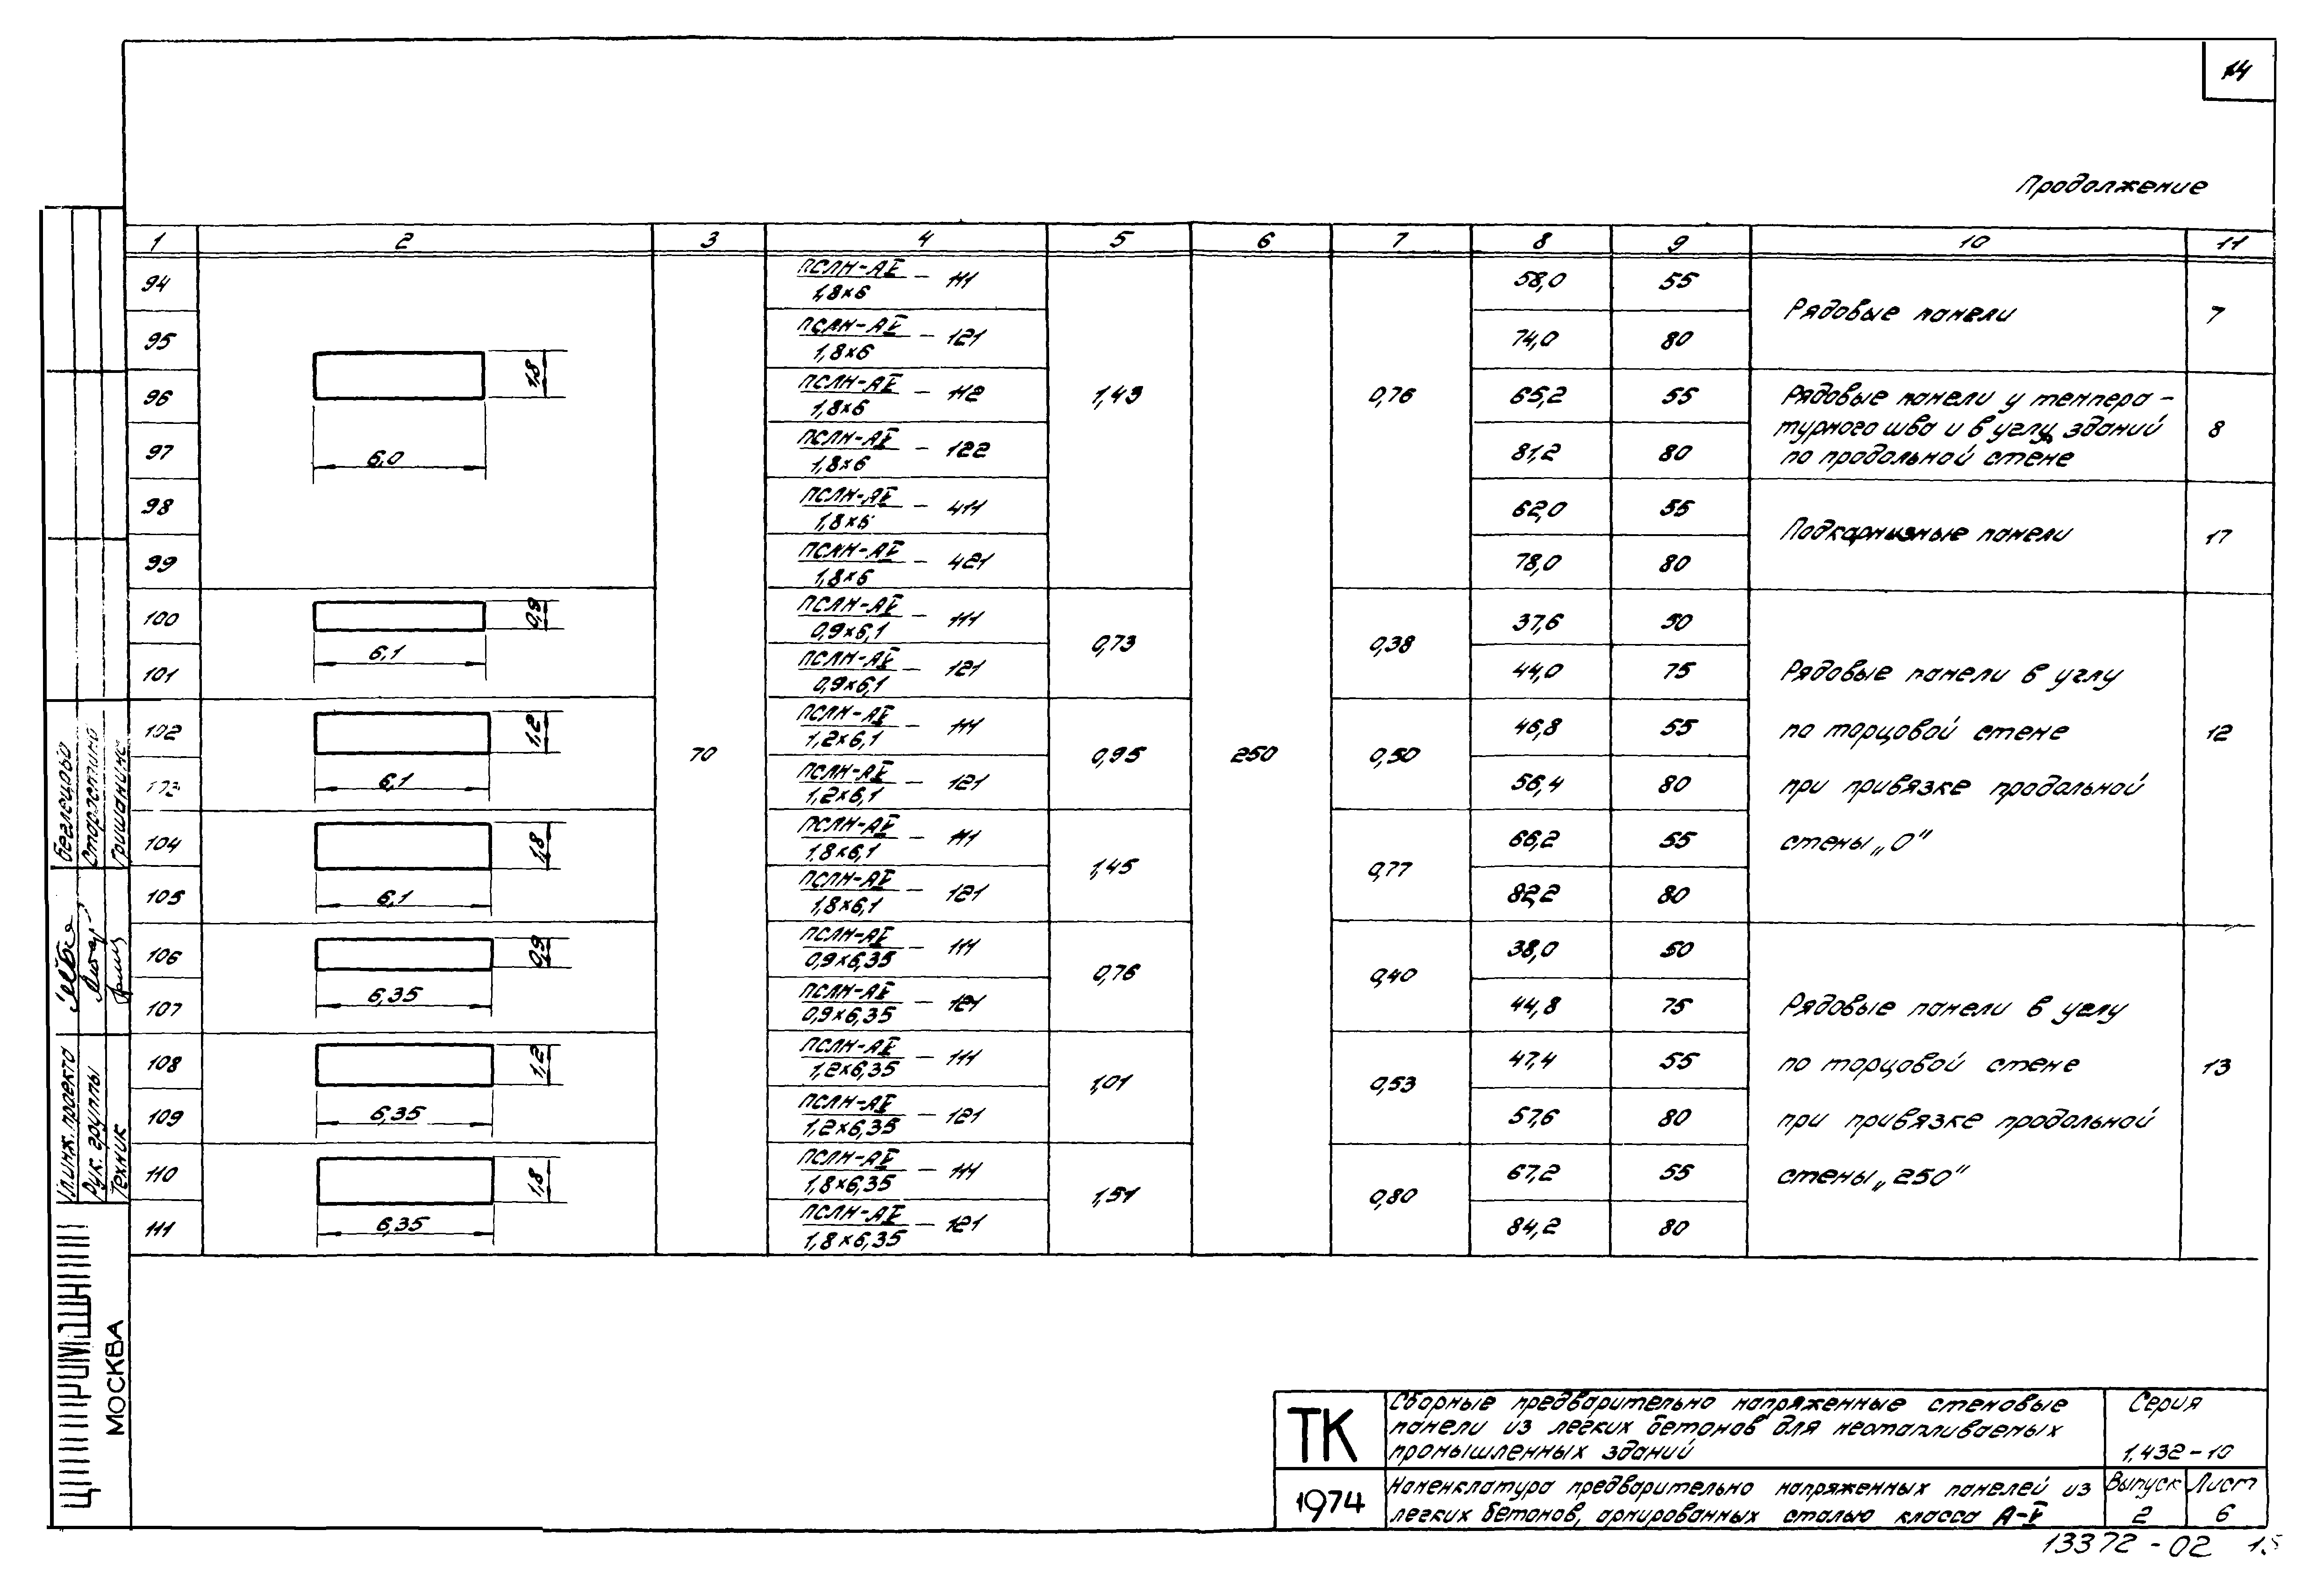 14
Продолжение
1 2 3 4 5 6 7 8 9 10 11
94 ПСЛН-АV/1,8×6 - 111 58,0 55
95 ПСЛН-АV/1,8×6 - 121 74,0 80
Рядовые панели 7
1,8
6,0
96 ПСЛН-АV/1,8×6 - 112 1,43 0,76 65,2 55
97 ПСЛН-АV/1,8×6 - 122 81,2 80
Рядовые панели у темпера-
турного шва и в углу зданий 8
по продольной стене
98 ПСЛН-АV/1,8×6 - 411 62,0 55
99 ПСЛН-АV/1,8×6 - 421 78,0 80
Подкарнизные панели 17
100 0,9 ПСЛН-АV/0,9×6,1 - 111 37,6 50
6,1 0,73 0,38
101 ПСЛН-АV/0,9×6,1 - 121 44,0 75
102 1,2 ПСЛН-АV/1,2×6,1 - 111 46,8 55
70 0,95 250 0,50
103 6,1 ПСЛН-АV/1,2×6,1 - 121 56,4 80
104 1,8 ПСЛН-АV/1,8×6,1 - 111 66,2 55
1,45 0,77
105 6,1 ПСЛН-АV/1,8×6,1 - 121 82,2 80
Рядовые панели в углу
по торцовой стене 12
при привязке продольной
стены „0”
106 0,9 ПСЛН-АV/0,9×6,35 - 111 38,0 50
6,35 0,76 0,40
107 ПСЛН-АV/0,9×6,35 - 121 44,8 75
108 1,2 ПСЛН-АV/1,2×6,35 - 111 47,4 55
1,01 0,53
109 6,35 ПСЛН-АV/1,2×6,35 - 121 57,6 80
110 1,8 ПСЛН-АV/1,8×6,35 - 111 67,2 55
1,51 0,80
111 6,35 ПСЛН-АV/1,8×6,35 - 121 84,2 80
Рядовые панели в углу
по торцовой стене 13
при привязке продольной
стены „250”
Гл. инж. проекта
Рук. группы
Техник
МОСКВА
ТК
1974
Сборные предварительно напряженные стеновые
панели из легких бетонов для неотапливаемых
промышленных зданий
Серия
1.432-10
Номенклатура предварительно напряженных панелей из
легких бетонов, армированных сталью класса А-V
Выпуск Лист
2 6
13372-02